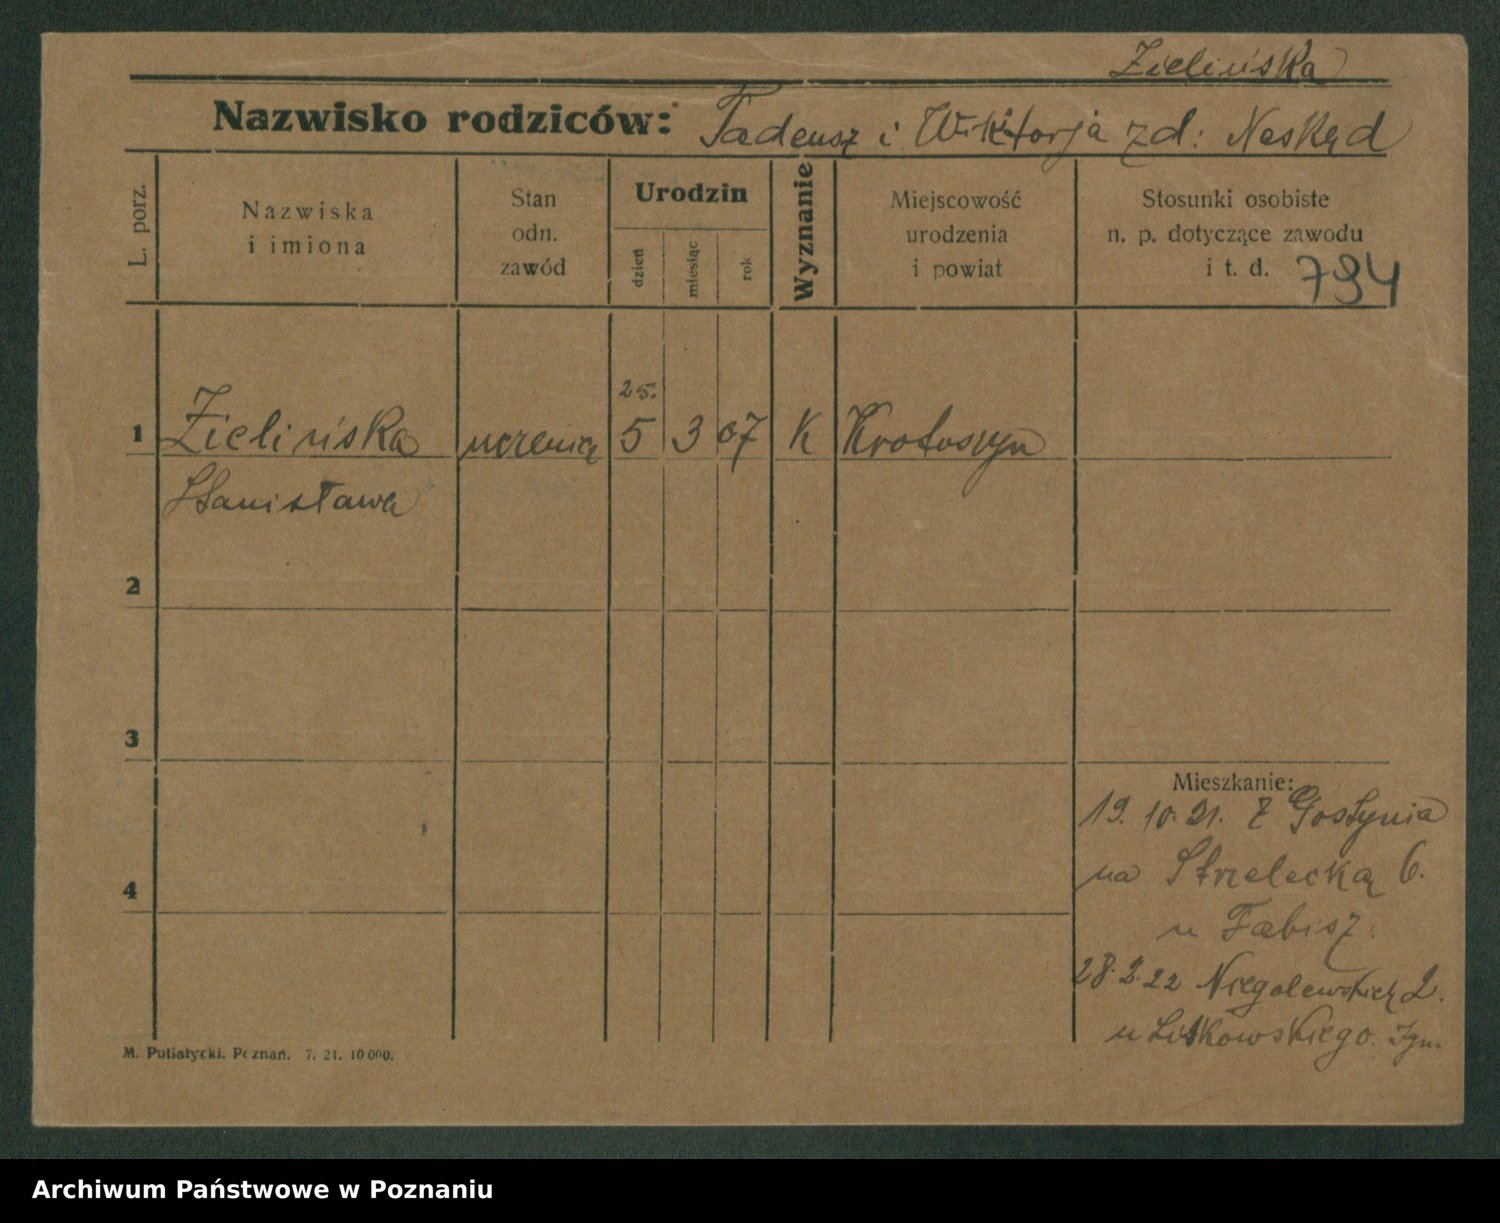 Zielińska
Nazwisko rodziców: Tadeusz i Wiktorja zd: Neskęd
L. porz.
Nazwiska
i imiona
Stan
odn.
zawód
Urodzin
dzień
miesiąc
rok
Wyznanie
Miejscowość
urodzenia
i powiat
Stosunki osobiste
n. p. dotyczące zawodu
i t. d. 794
25.
1 Zielińska uczenica 5 3 07 K Krotoszyn
Stanisława
2
3
Mieszkanie:
19. 10. 21. z Gostynia
na Strzelecką 6.
4
u Fabisz.
28.2.22 Niegolewskich 2.
u Liskowskiego. Ign.
M. Putiatycki, Poznań. 7. 21. 10 000.
Archiwum Państwowe w Poznaniu